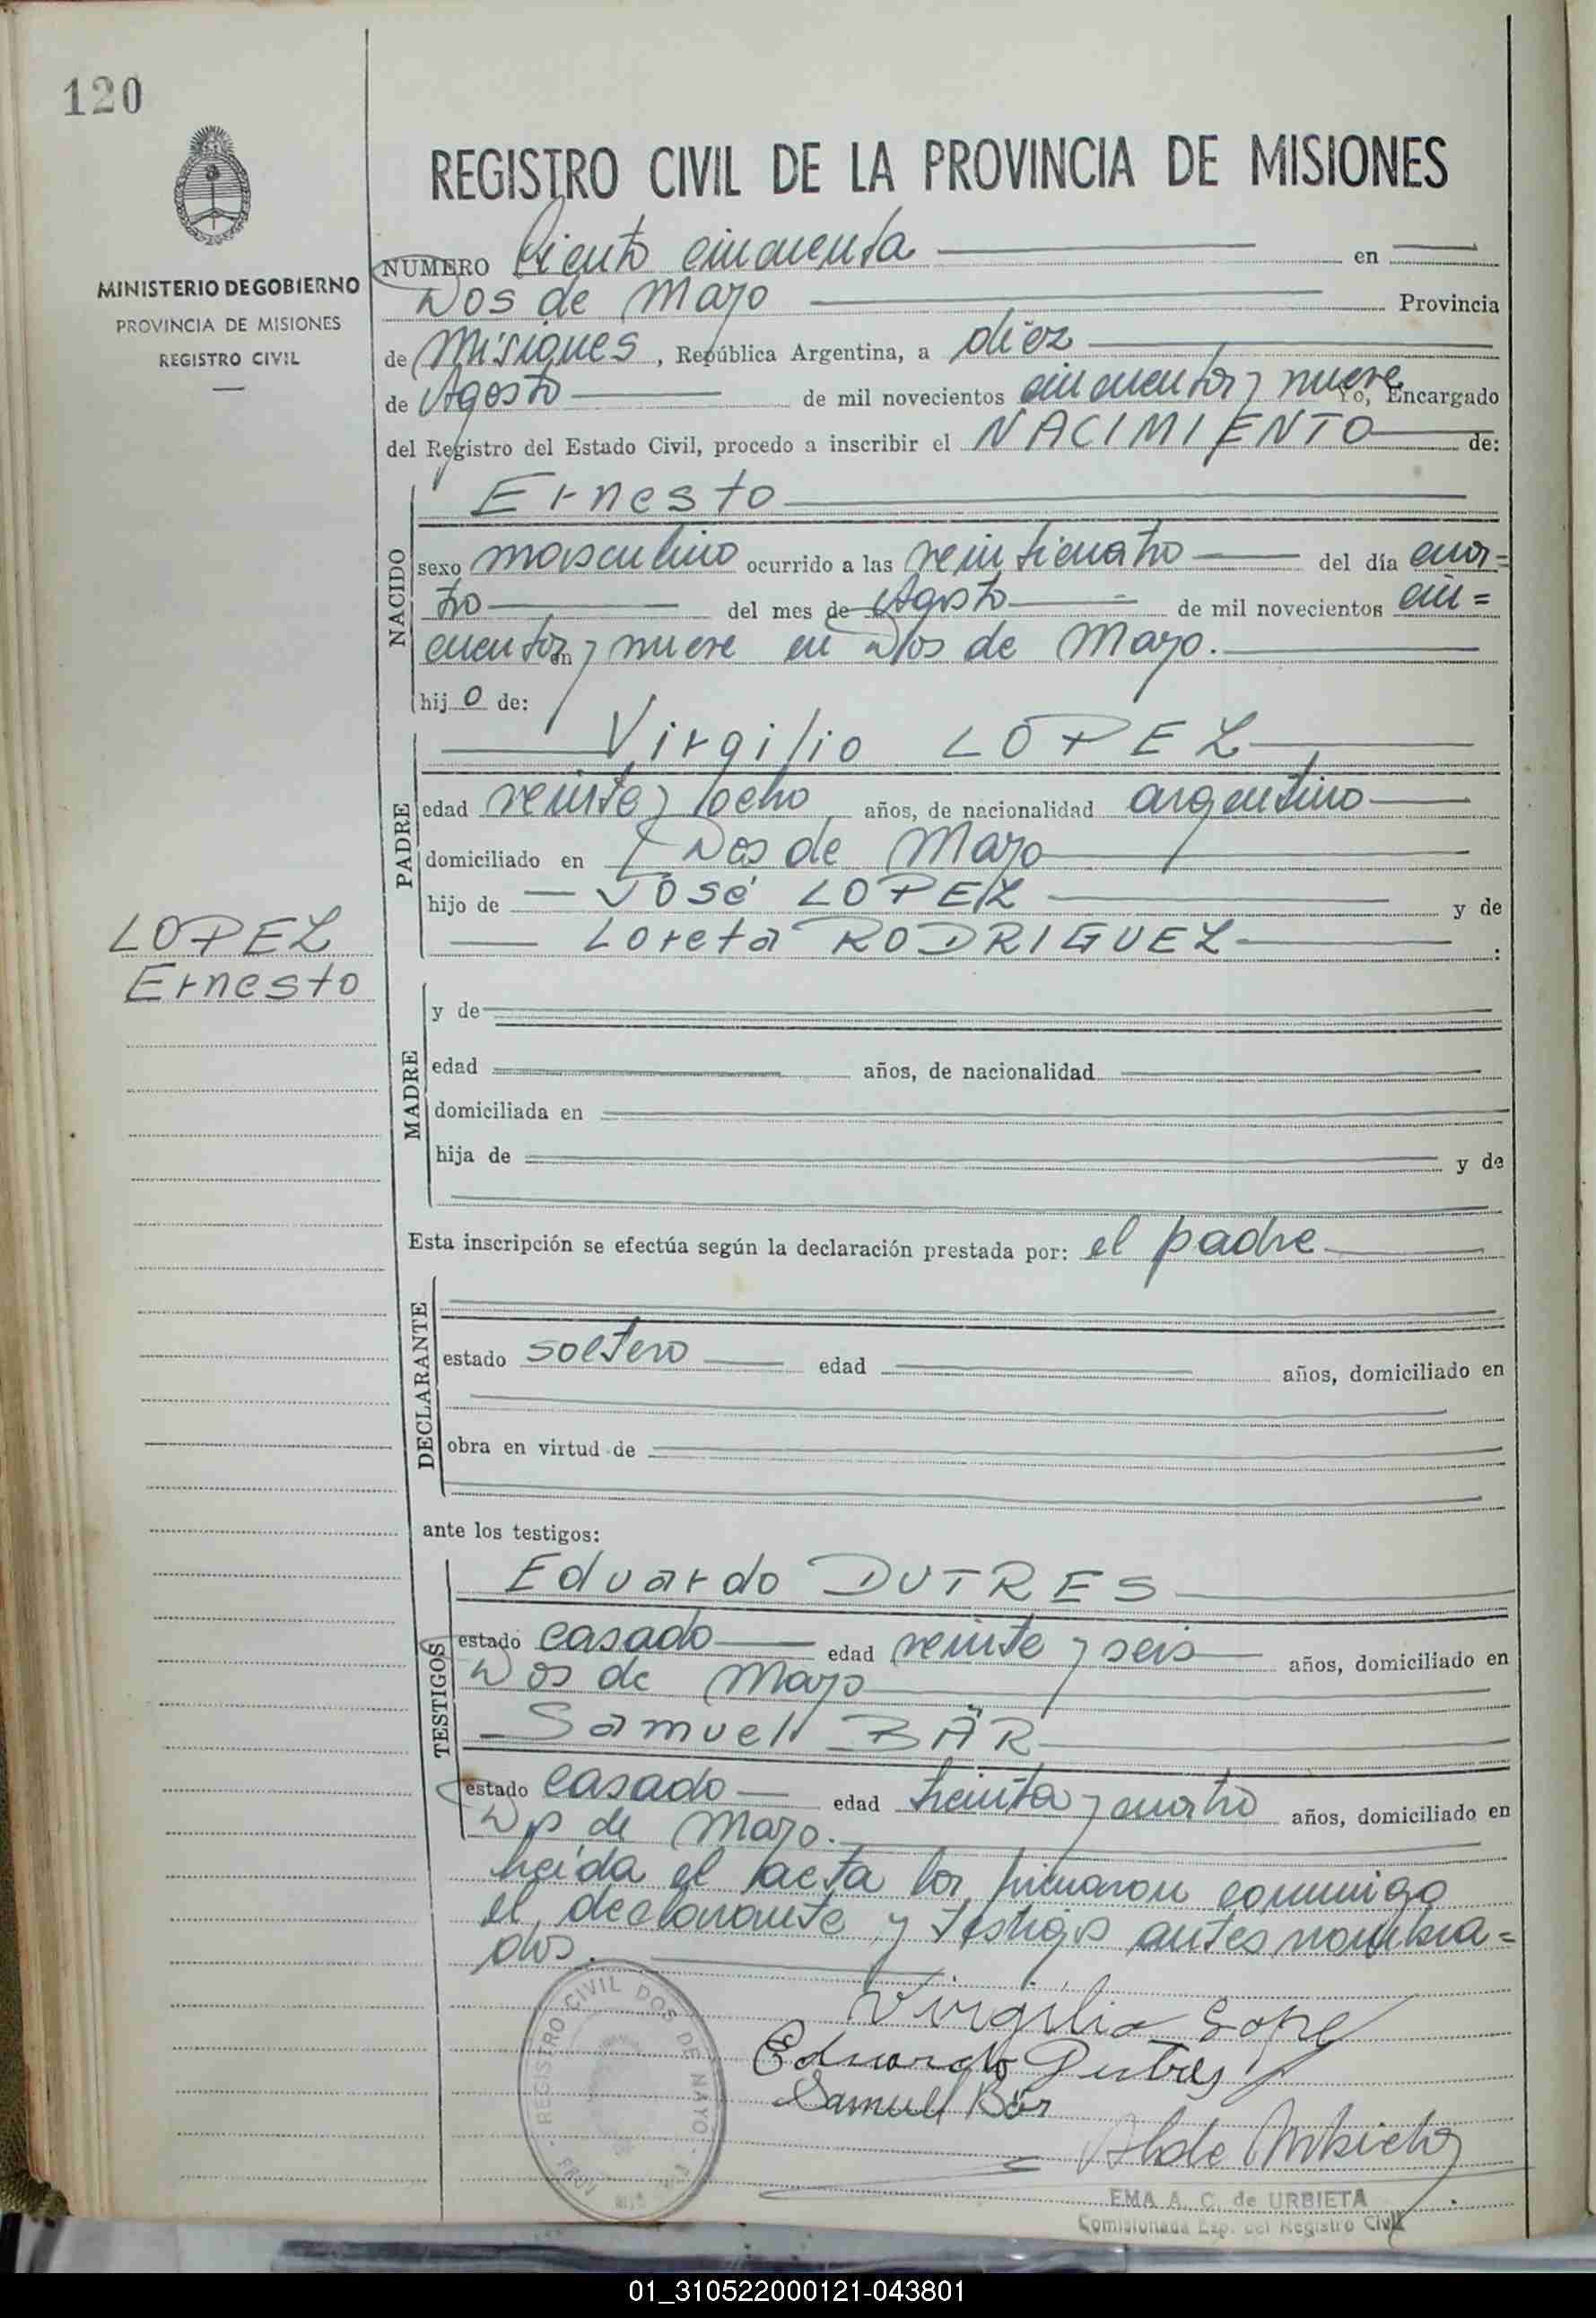 120
MINISTERIO DE GOBIERNO
PROVINCIA DE MISIONES
REGISTRO CIVIL
REGISTRO CIVIL DE LA PROVINCIA DE MISIONES
NUMERO Ciento cincuenta en
Dos de Mayo Provincia
de Misiones, República Argentina, a diez
de Agosto de mil novecientos cincuenta y nueve Yo, Encargado
del Registro del Estado Civil, procedo a inscribir el NACIMIENTO de:
NACIDO
Ernesto
sexo masculino ocurrido a las veinticuatro del día cua=
tro del mes de Agosto de mil novecientos cin=
cuenta y nueve en Dos de Mayo.
hijo de:
PADRE
Virgilio LOPEZ
edad veinte y ocho años, de nacionalidad argentino
domiciliado en Dos de Mayo
hijo de José LOPEZ y de
Loreta RODRIGUEZ.
LOPEZ
Ernesto
MADRE
y de
edad años, de nacionalidad
domiciliada en
hija de y de
Esta inscripción se efectúa según la declaración prestada por: el padre
DECLARANTE
estado soltero edad años, domiciliado en
obra en virtud de
ante los testigos:
TESTIGOS
Eduardo DUTRES
estado casado edad veinte y seis años, domiciliado en
Dos de Mayo
Samuel BÄR
estado casado edad treinta y cuatro años, domiciliado en
Dos de Mayo.
Leída el acta la firmaron conmigo
el declarante y testigos antes nombra=
dos.
Virgilio Lope
Eduardo Dutres
Samuel Bär
REGISTRO CIVIL DOS DE MAYO
EMA A. C. de URBIETA
Comisionada Esp. del Registro Civil
01_310522000121-043801